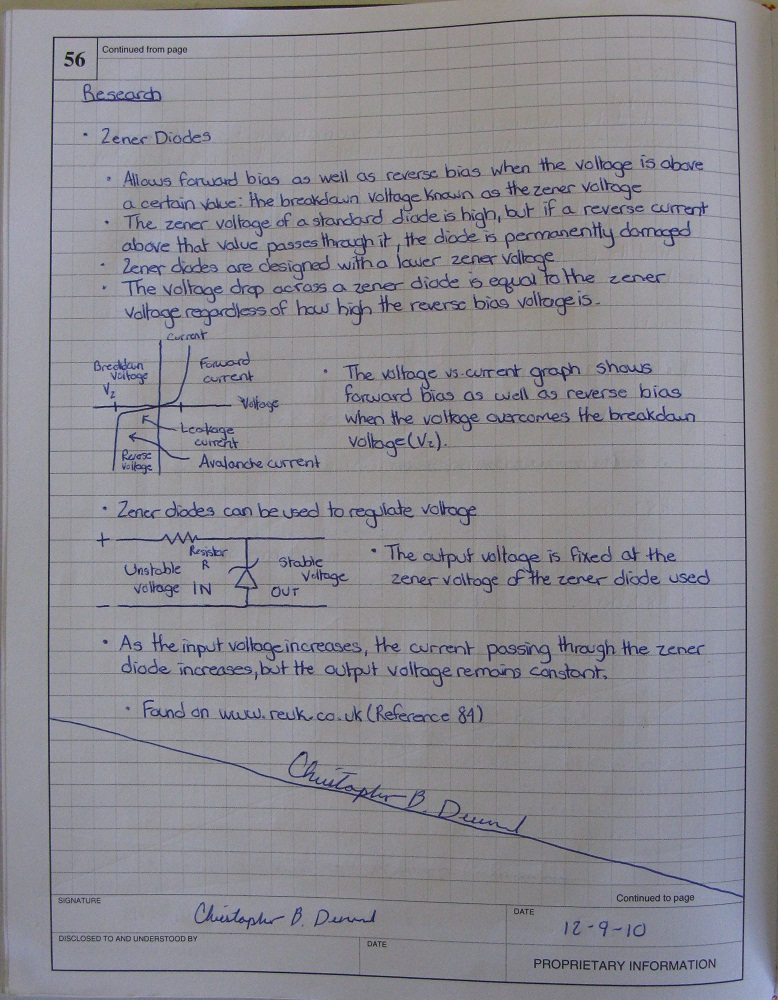 56
Continued from page
Research
• Zener Diodes
• Allows forward bias as well as reverse bias when the voltage is above
a certain value: the breakdown voltage known as the zener voltage
• The zener voltage of a standard diode is high, but if a reverse current
above that value passes through it, the diode is permanently damaged
• Zener diodes are designed with a lower zener voltage
• The voltage drop across a zener diode is equal to the zener
voltage regardless of how high the reverse bias voltage is.
Current
Breakdown
Voltage
Vz
Forward
current
Voltage
Leakage
current
Reverse
voltage
Avalanche current
• The voltage vs. current graph shows
forward bias as well as reverse bias
when the voltage overcomes the breakdown
voltage (Vz).
• Zener diodes can be used to regulate voltage
+
Resistor
R
Unstable
voltage IN
Stable
Voltage
OUT
–
• The output voltage is fixed at the
zener voltage of the zener diode used
• As the input voltage increases, the current passing through the zener
diode increases, but the output voltage remains constant.
• Found on www.reuk.co.uk (Reference 84)
Christopher B.
Continued to page
SIGNATURE
Christopher B.
DATE
12-9-10
DISCLOSED TO AND UNDERSTOOD BY
DATE
PROPRIETARY INFORMATION